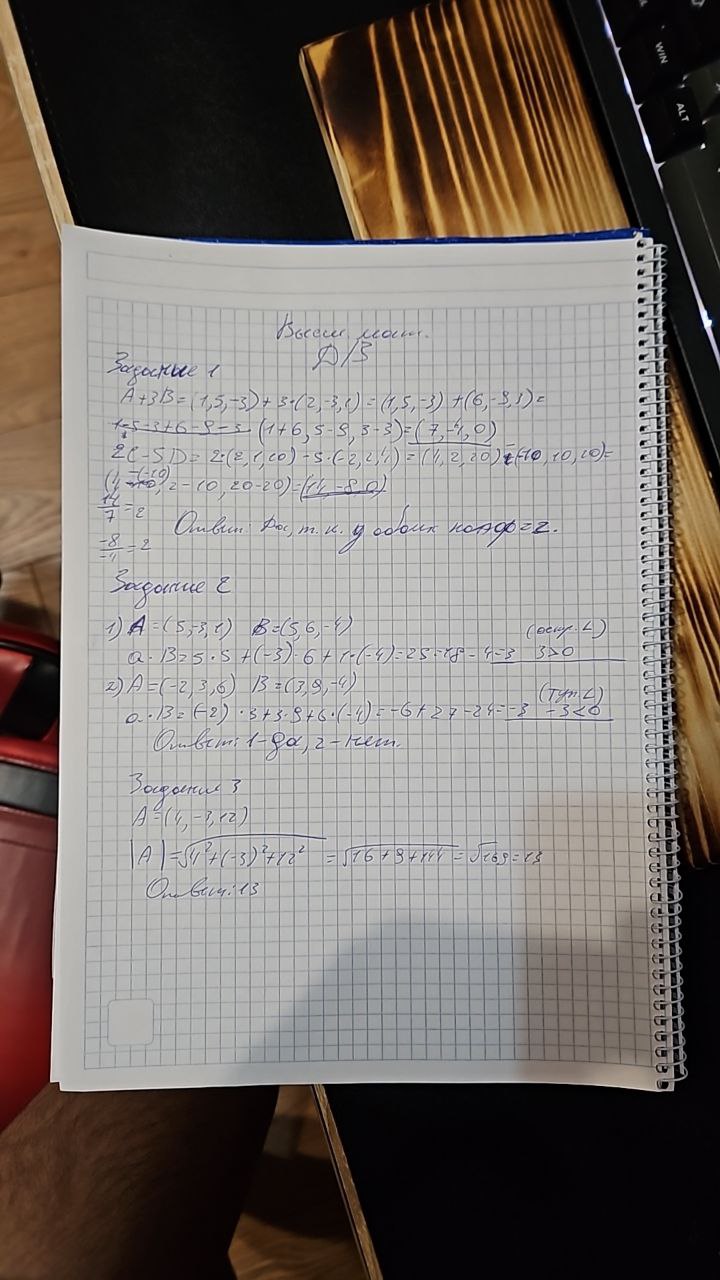 WIN
ALT
Высш. мат.
Д/З
Задание 1
A+3B=(1,5,-3)+3·(2,-3,1)=(1,5,-3)+(6,-9,3)=
(1+6, 5-9, 3-3)=(7,-4,0)
2C-5D=2·(2,1,10)-5·(-2,2,4)=(4,2,20)-(-10,10,20)=
(4-(-10), 2-10, 20-20)=(14,-8,0)
14/7=2
-8/-4=2
Ответ: Да, т.к. у обоих коэф=2.
Задание 2
1) A=(5,-3,1) B=(5,6,-4)
a·B=5·5+(-3)·6+1·(-4)=25-18-4=3 3>0
(остр. L)
2) A=(-2,3,6) B=(3,9,-4)
a·B=(-2)·3+3·9+6·(-4)=-6+27-24=-3 -3<0
(туп. L)
Ответ: 1-да, 2-нет.
Задание 3
A=(4,-3,12)
|A|=√4²+(-3)²+12² =√16+9+144=√169=13
Ответ: 13